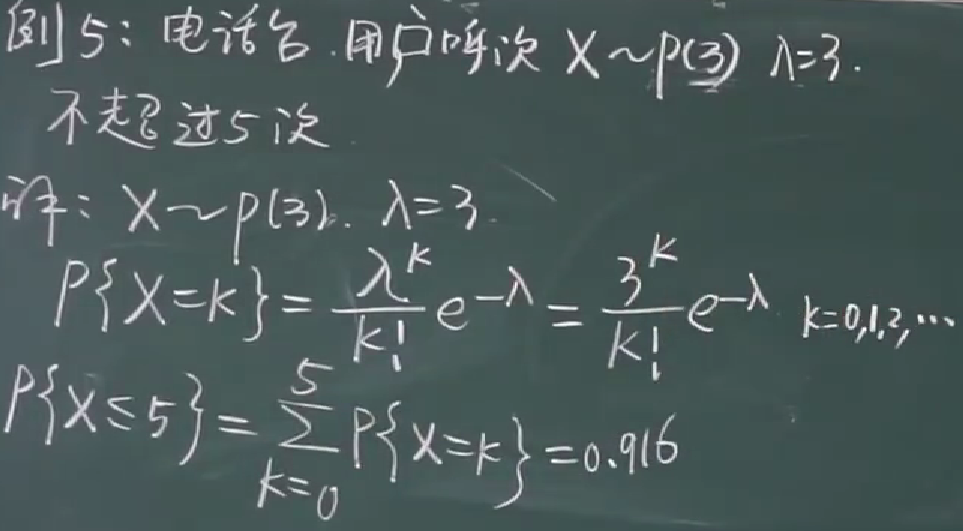 例5: 电话台.用户呼次 X~P(3) λ=3.
不超过5次.
解: X~P(3). λ=3.
P{X=K}=\frac{λ^K}{K!}e^{-λ}=\frac{3^K}{K!}e^{-λ} K=0,1,2,…
P{X≤5}=\sum_{K=0}^{5}P{X=K}=0.916